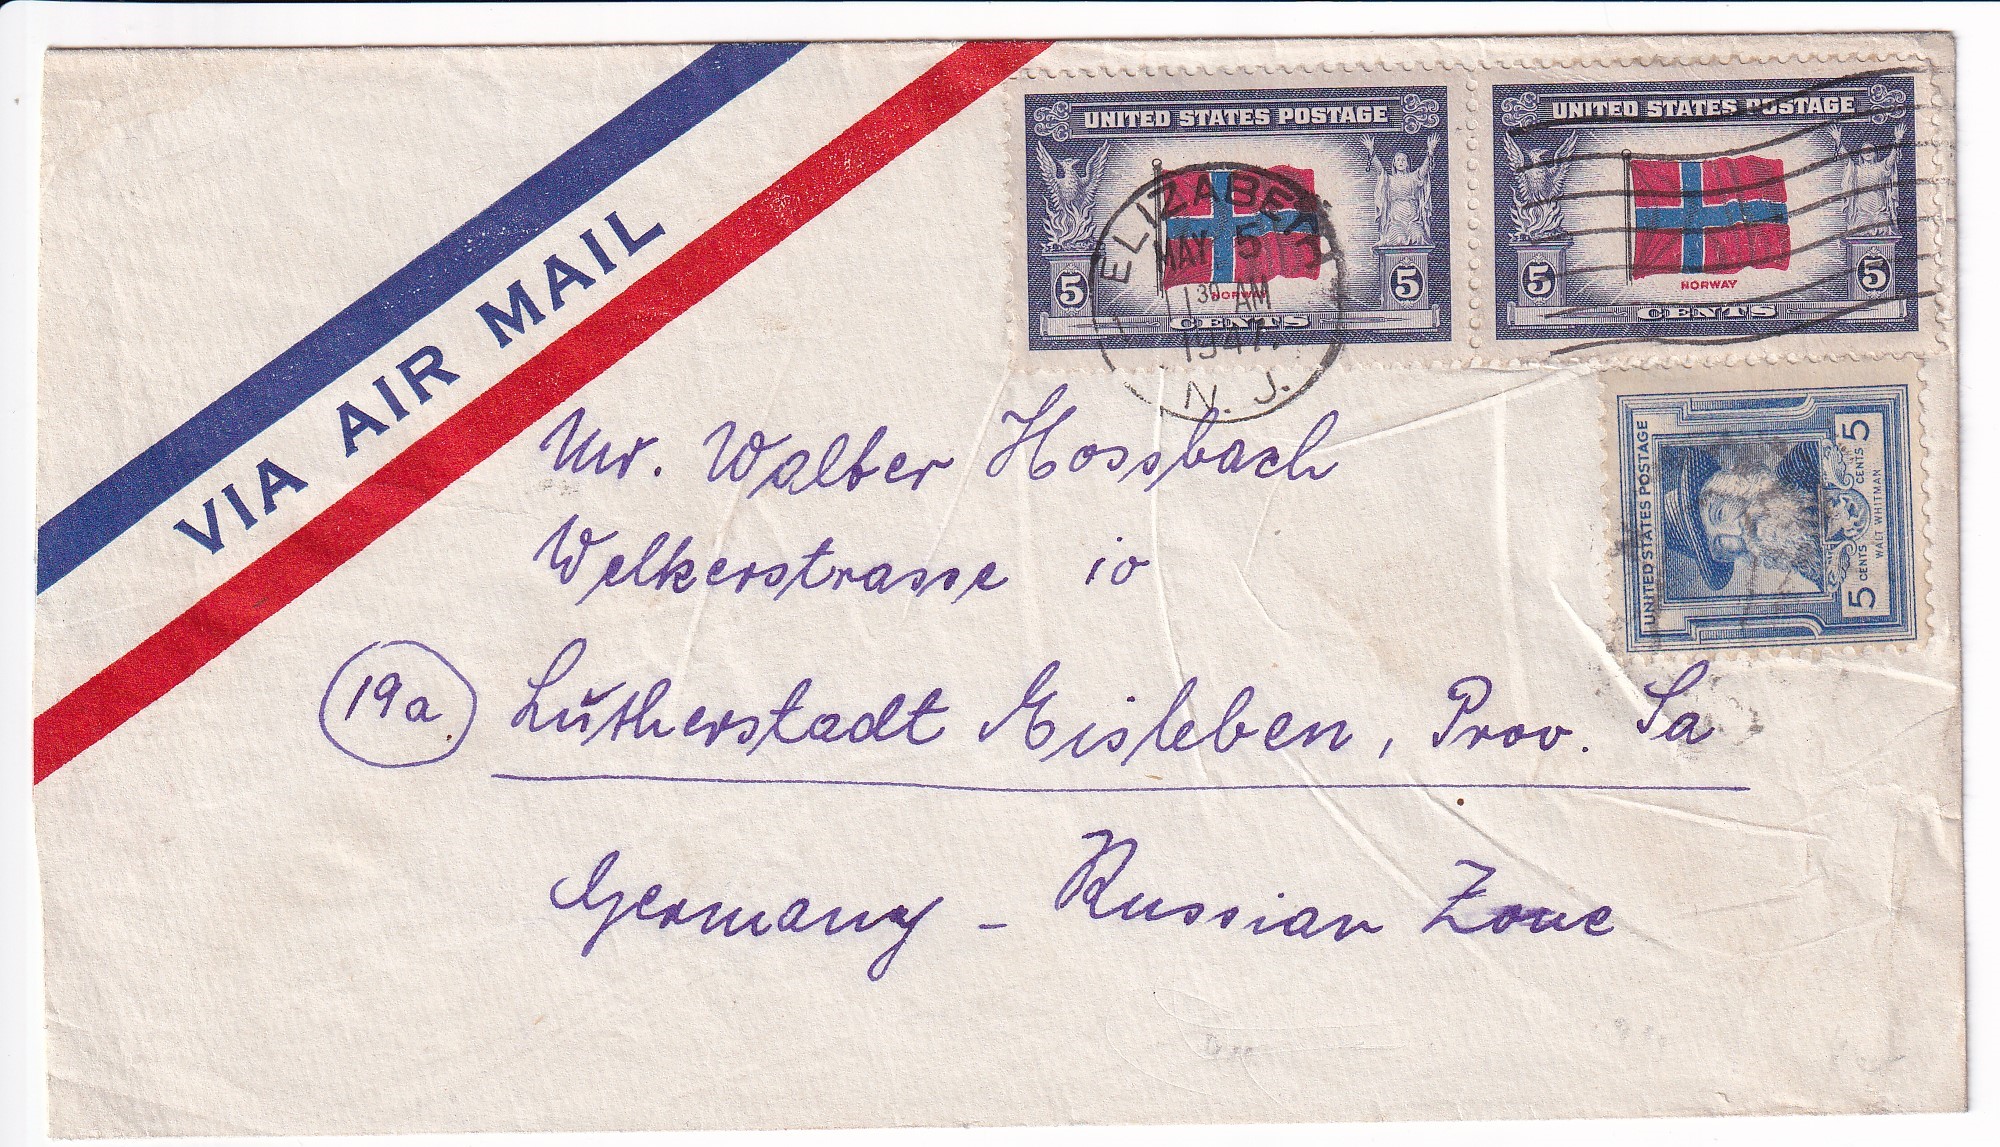 VIA AIR MAIL
UNITED STATES POSTAGE
5 5
NORWAY
CENTS
UNITED STATES POSTAGE
5 5
NORWAY
CENTS
ELIZABETH
MAY 5
1 30 AM
1947
N. J.
UNITED STATES POSTAGE
5 CENTS CENTS 5
WALT WHITMAN
Mr. Walter Hossbach
Welkerstrasse 10
19a Lutherstadt Eisleben, Prov. Sa
Germany - Russian Zone